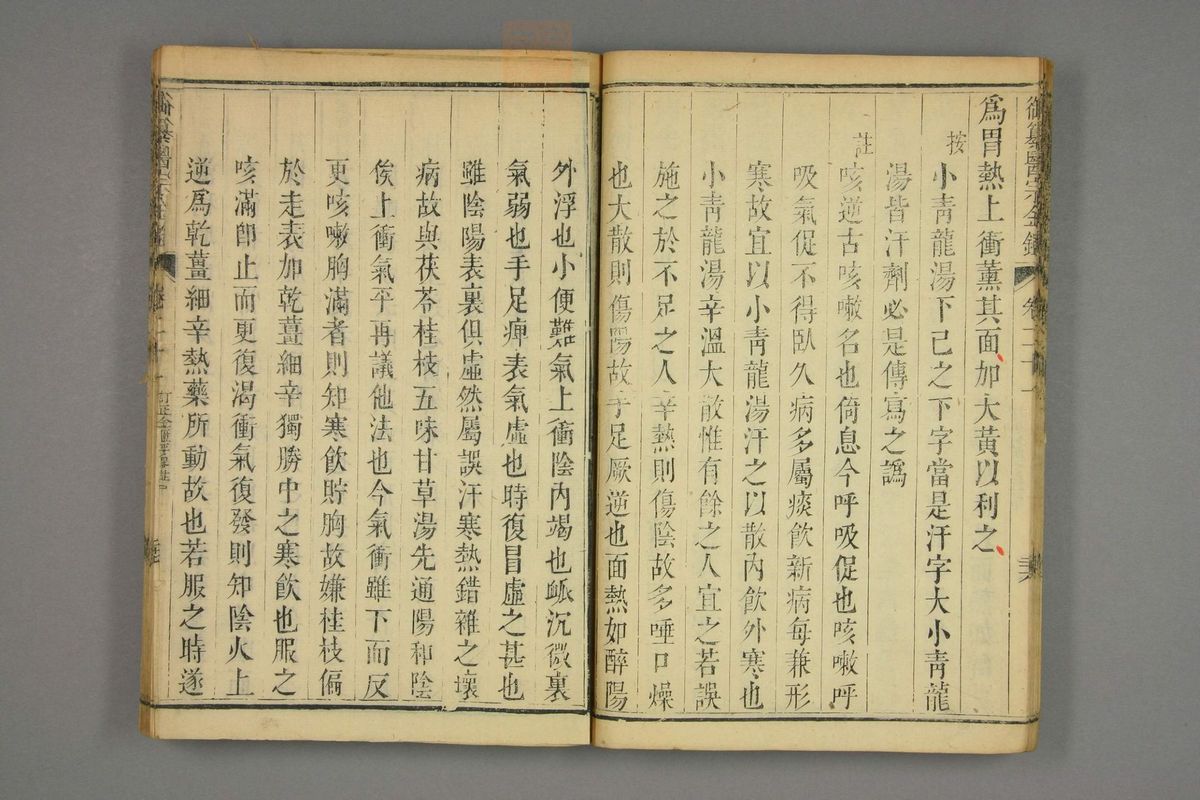 御纂醫宗金鑑 卷二十
爲胃熱上衝薰其面、加大黃以利之、
按 小青龍湯下己之下字當是汗字大小青龍
湯皆汗劑必是傳寫之譌
註 咳逆古咳嗽名也倚息今呼吸促也咳嗽呼
吸氣促不得臥久病多屬痰飲新病每兼形
寒故宜以小青龍湯汗之以散內飲外寒也
小青龍湯辛溫大散惟有餘之人宜之若誤
施之於不足之人辛熱則傷陰故多唾口燥
也大散則傷陽故手足厥逆也面熱如醉陽
外浮也小便難氣上衝陰內竭也脈沉微裏
氣弱也手足痺表氣虛也時復冒虛之甚也
雖陰陽表裏俱虛然屬誤汗寒熱錯雜之壞
病故與茯苓桂枝五味甘草湯先通陽和陰
俟上衝氣平再議他法也今氣衝雖下而反
更咳嗽胸滿者則知寒飲貯胸故嫌桂枝偏
於走表加乾薑細辛獨勝中之寒飲也服之
咳滿即止而更復渴衝氣復發則知陰火上
逆爲乾薑細辛熱藥所動故也若服之時遂